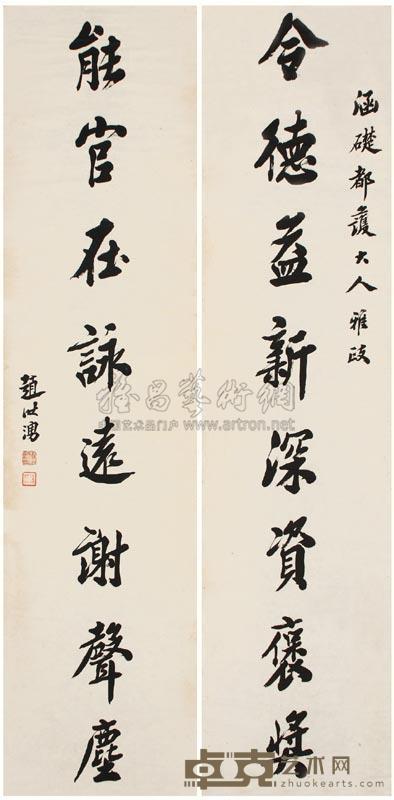 涵礎都護大人雅政
令德益新深資褒獎
能官在詠遠謝聲塵
趙世湧
雅昌藝術網
中国艺术品门户 www.artron.net
卓克艺术网
www.zhuokearts.com